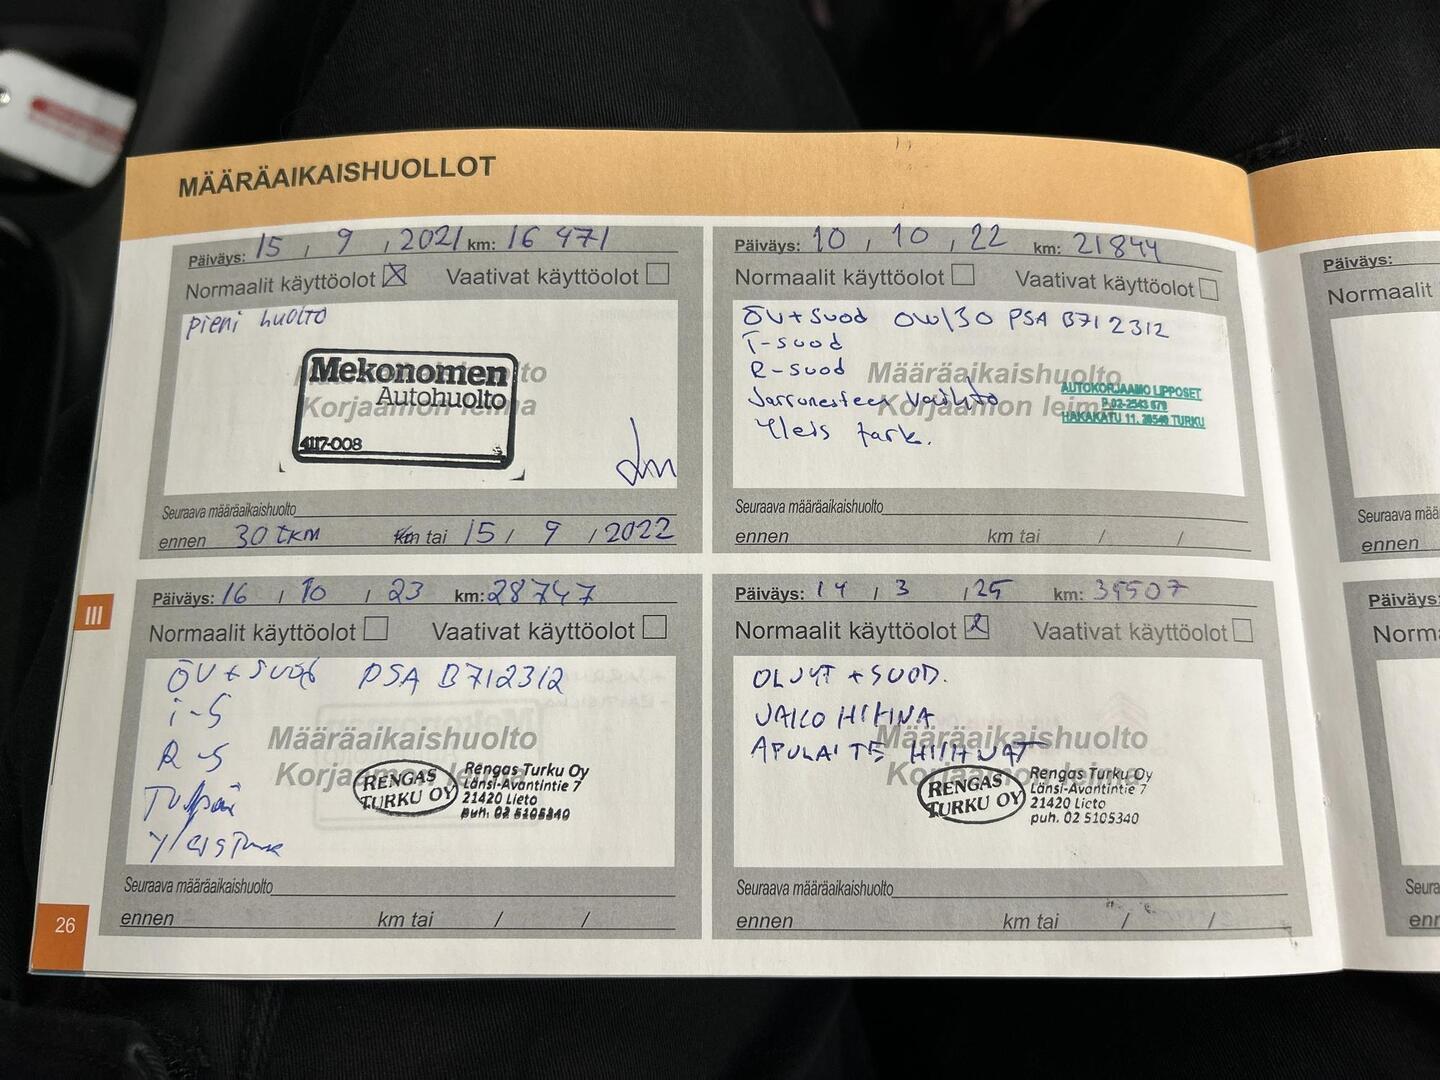 MÄÄRÄAIKAISHUOLLOT
Päiväys: 15 , 9 , 2021 km: 16 471
Normaalit käyttöolot ☒ Vaativat käyttöolot ☐
Pieni huolto
Määräaikaishuolto
Korjaamon leima
Mekonomen
Autohuolto
4117-008
Seuraava määräaikaishuolto
ennen 30 tkm km tai 15 / 9 / 2022
Päiväys: 10 , 10 , 22 km: 21844
Normaalit käyttöolot ☐ Vaativat käyttöolot ☐
ÖV+Suod 0W/30 PSA B712312
I-suod
R-suod
Jarrunesteen vaihto
Yleis tark.
Määräaikaishuolto
Korjaamon leima
AUTOKORJAAMO LIPPOSET
P.02-2543 679
HAKAKATU 11, 20540 TURKU
Seuraava määräaikaishuolto
ennen km tai / /
Päiväys: 16 , 10 , 23 km: 28747
Normaalit käyttöolot ☐ Vaativat käyttöolot ☐
ÖV+Suod PSA B712312
i-S
R-S
Määräaikaishuolto
Korjaamon leima
RENGAS
TURKU OY
Rengas Turku Oy
Länsi-Avantintie 7
21420 Lieto
puh. 02 5105340
Seuraava määräaikaishuolto
ennen km tai / /
Päiväys: 14 , 3 , 25 km: 39507
Normaalit käyttöolot ☒ Vaativat käyttöolot ☐
ÖLJYT + SUOD.
JAKO HIHNA
APULAITE HIHNAT
Määräaikaishuolto
Korjaamon leima
RENGAS
TURKU OY
Rengas Turku Oy
Länsi-Avantintie 7
21420 Lieto
puh. 02 5105340
Seuraava määräaikaishuolto
ennen km tai / /
III
26
Päiväys:
Normaalit
Seuraava mää
ennen
Päiväys:
Norm
Seura
enn